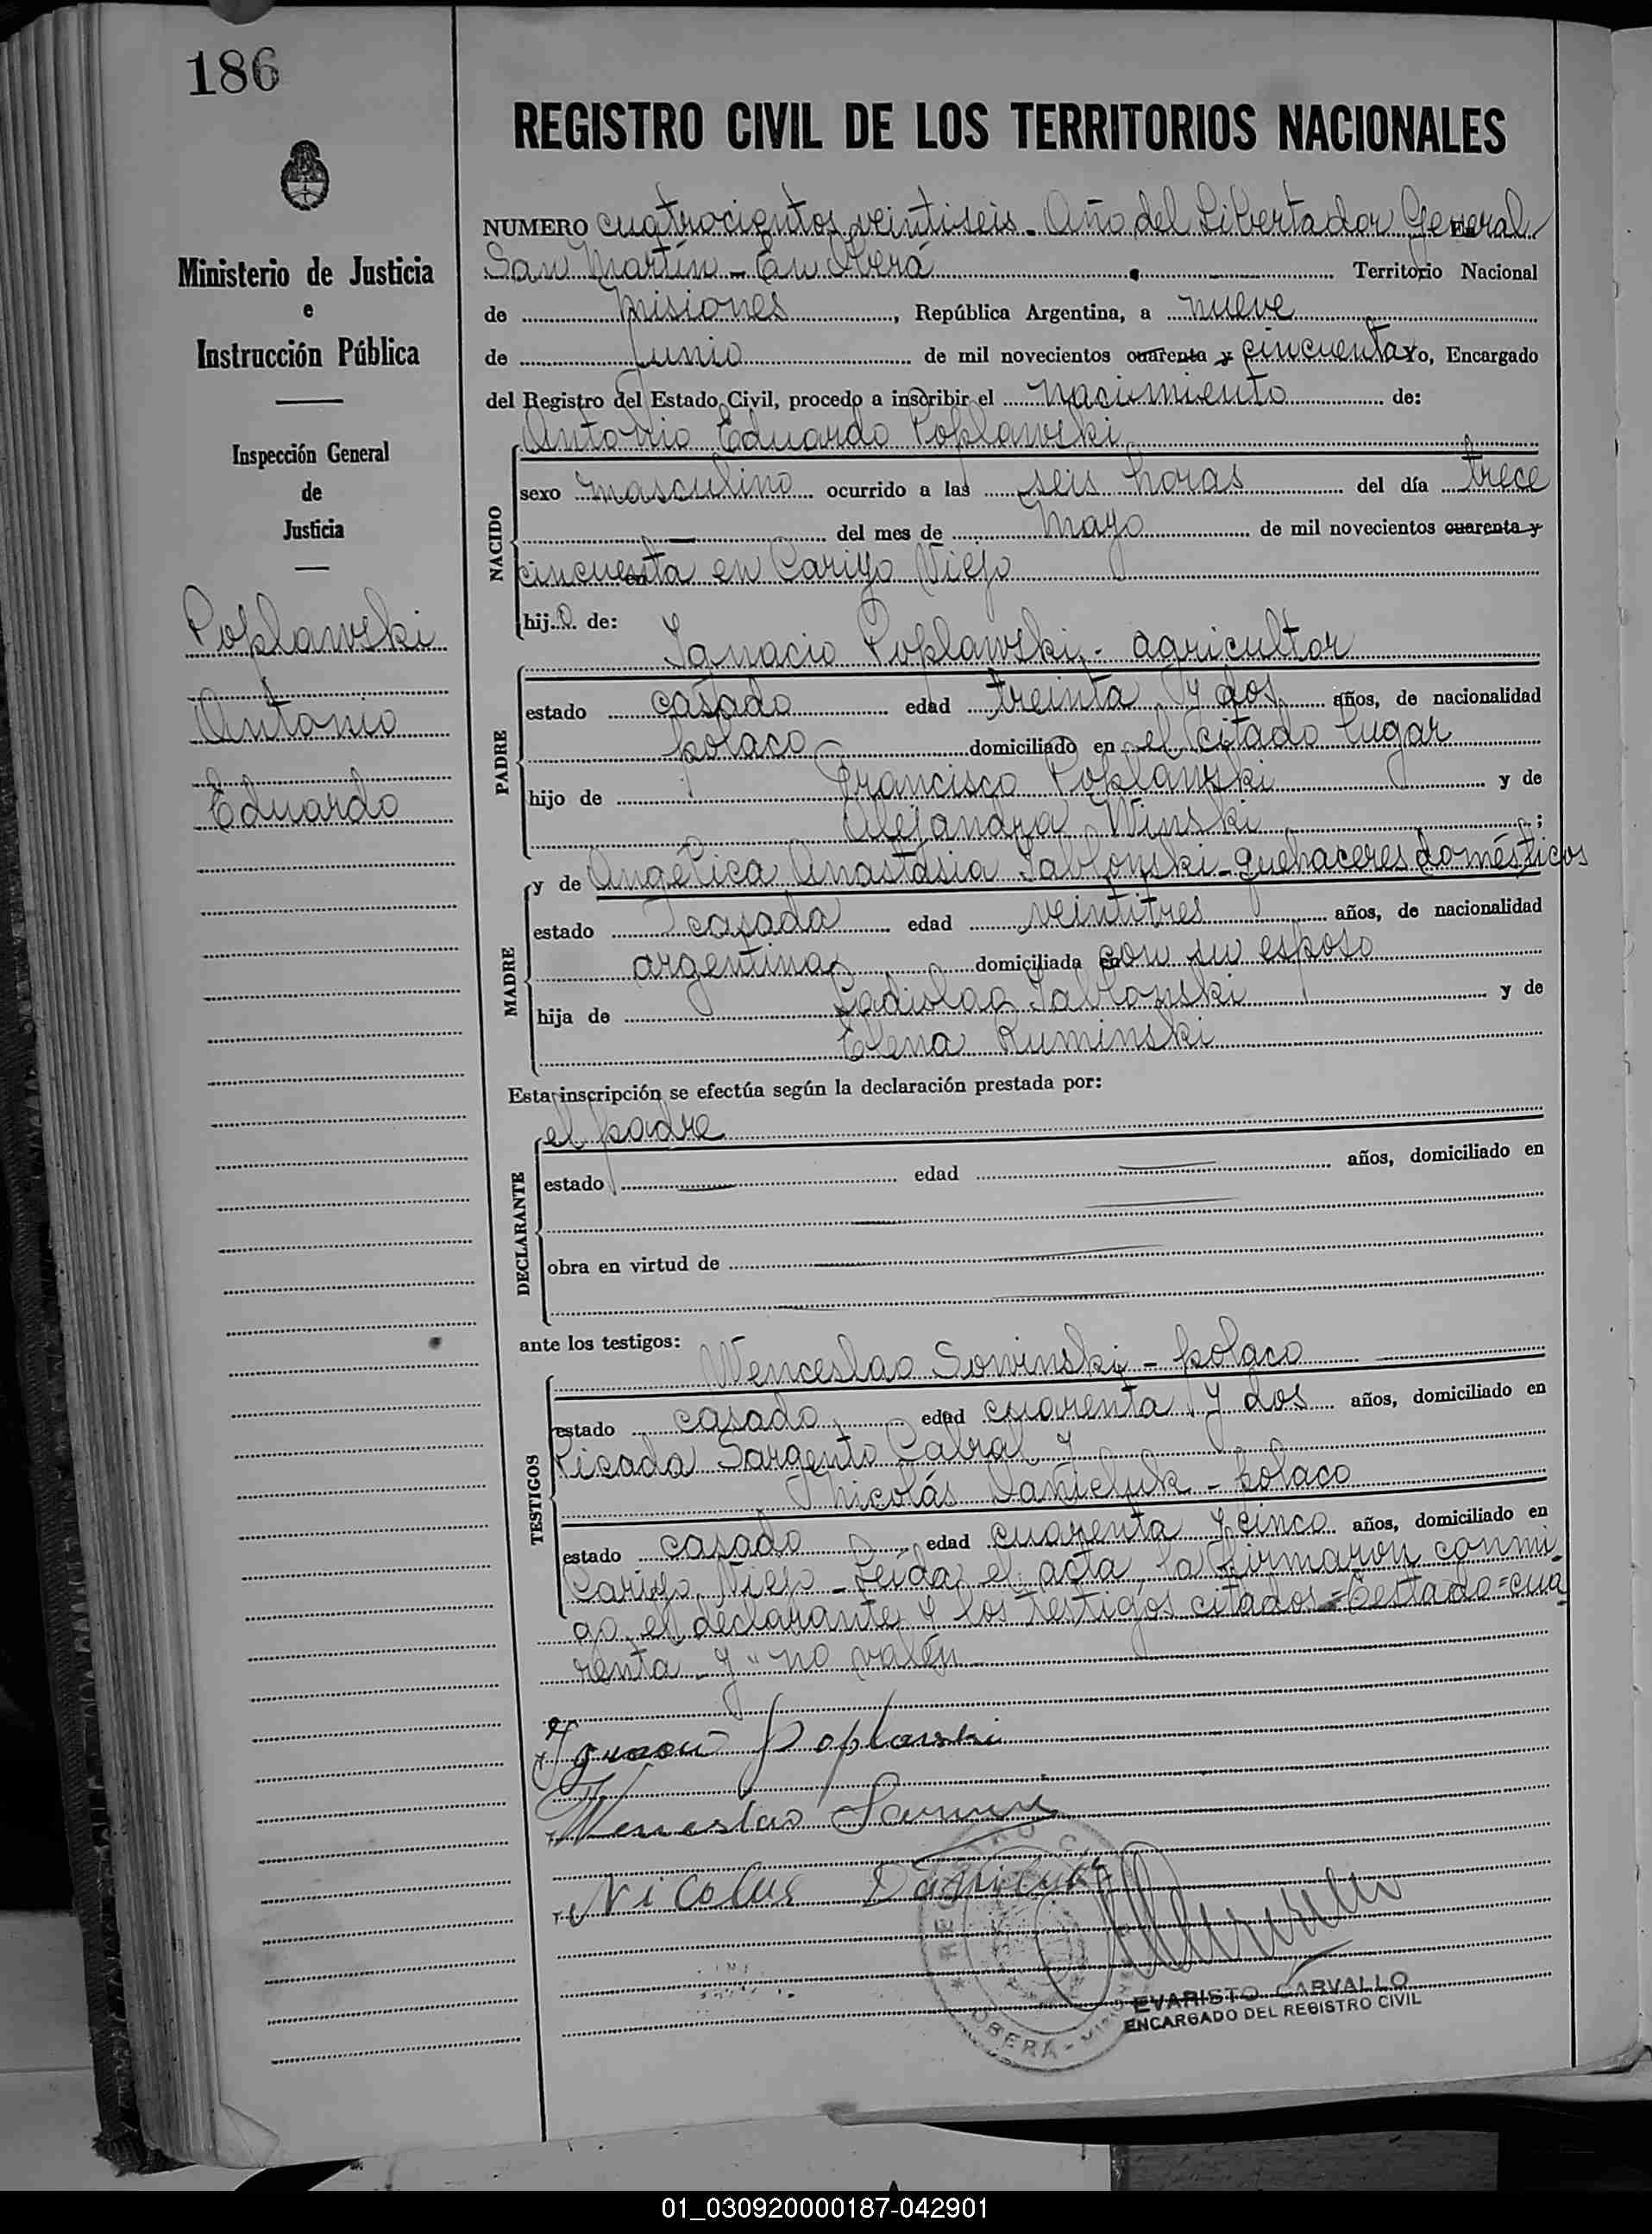 186
Ministerio de Justicia
e
Instrucción Pública
Inspección General
de
Justicia
Poplawski
Antonio
Eduardo
REGISTRO CIVIL DE LOS TERRITORIOS NACIONALES
NUMERO cuatrocientos veintiseis - Año del Libertador General
San Martín - En Oberá Territorio Nacional
de Misiones, República Argentina, a nueve
de Junio de mil novecientos cuarenta y cincuenta Yo, Encargado
del Registro del Estado Civil, procedo a inscribir el nacimiento de:
Antonio Eduardo Poplawski
NACIDO
sexo masculino ocurrido a las seis horas del día trece
del mes de Mayo de mil novecientos cuarenta y
cincuenta en Cariyo Viejo
hijo de:
Ignacio Poplawski - agricultor
PADRE
estado casado edad treinta y dos años, de nacionalidad
polaco domiciliado en el citado lugar
hijo de Francisco Poplawski y de
Alejandra Winski ;
y de Angélica Anastasia Jablonski - quehaceres domésticos
MADRE
estado casada edad veintitres años, de nacionalidad
argentina domiciliada en con su esposo
hija de Ladislao Jablonski y de
Elena Ruminski
Esta inscripción se efectúa según la declaración prestada por:
el padre
DECLARANTE
estado edad años, domiciliado en
obra en virtud de
ante los testigos:
Wenceslao Sowinski - polaco
TESTIGOS
estado casado edad cuarenta y dos años, domiciliado en
Picada Sargento Cabral y
Nicolás Danieluk - polaco
estado casado edad cuarenta y cinco años, domiciliado en
Cariyo Viejo - Leída el acta, la firmaron conmi-
go el declarante y los testigos citados = Testado = cua-
renta - y " no valen
Ignacio Poplawski
Wenceslao
Nicolas
REGISTRO CIVIL
OBERÁ - MISIONES
EVARISTO CARVALLO
ENCARGADO DEL REGISTRO CIVIL
01_030920000187-042901